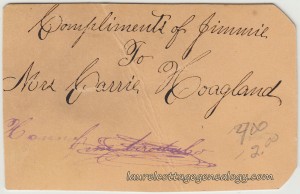 Compliments of Jimmie
To
Mrs Carrie Hoagland
2.00
laurelcottagegenealogy.com